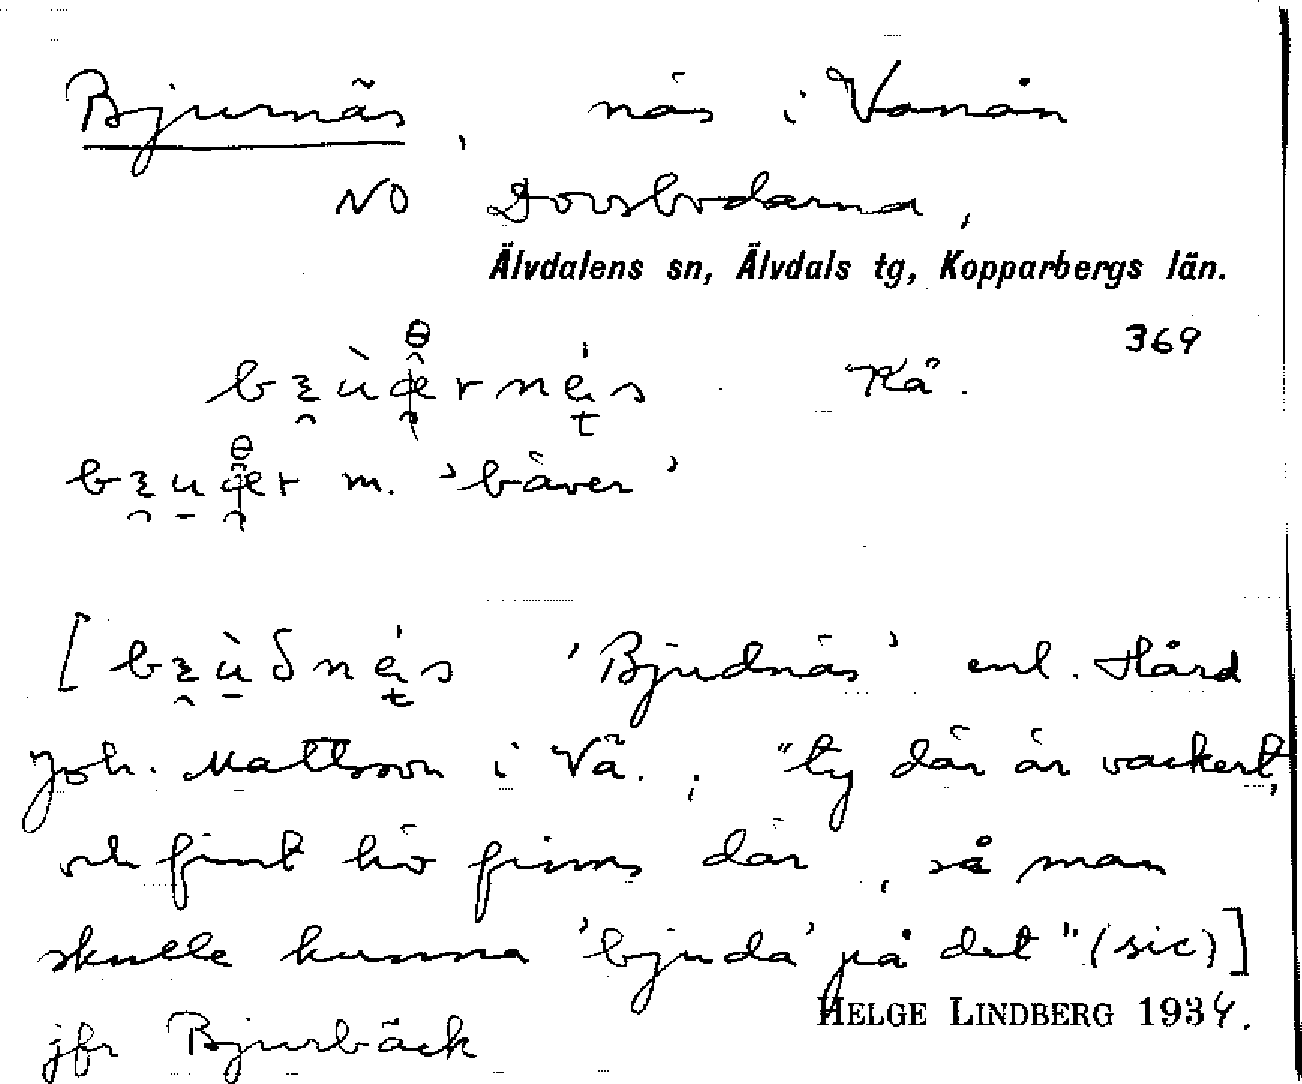 Bjurnäs, näs i Vanån
NO Dovsbodarna,
Älvdalens sn, Älvdals tg, Kopparbergs län.
369
Kå.
m. 'bäver'
'Bjudnäs' enl. Hård
Joh. Mattsson i Vä.; "ty där är vackert,
och fint hö finns där, så man
skulle kunna 'bjuda' på det" (sic)]
HELGE LINDBERG 1934.
jfr Bjurbäck